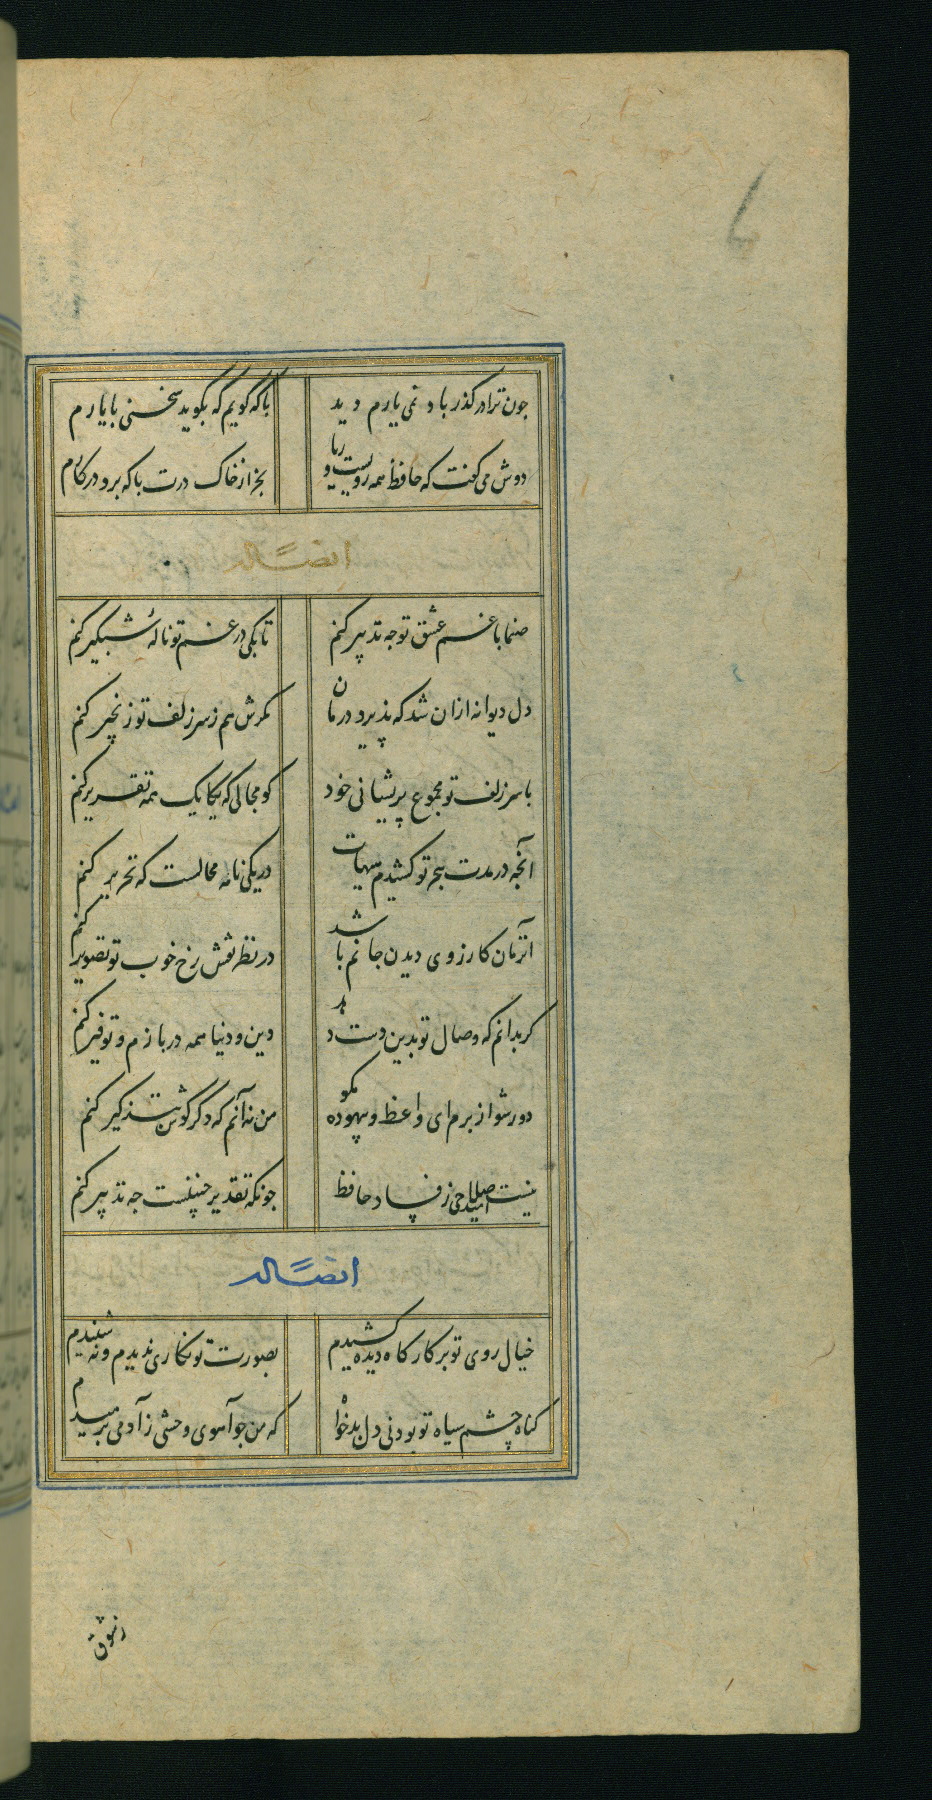 چون ترا در گذر باد نمی یارم دید با که گویم که بگوید سخنی با یارم
دوش می گفت که حافظ همه رویست و ریا بجز از خاک درت با که بود در کارم
ایضاً له
صنما با غم عشق تو چه تدبیر کنم تا بکی در غم تو ناله شبگیر کنم
دل دیوانه ازان شد که پذیرد درمان مکرش هم ز سر زلف تو زنجیر کنم
با سر زلف تو مجموع پریشانی خود کو مجالی که یکایک همه تقریر کنم
آنچه در مدت هجر تو کشیدم هیهات در یکی نامه محالست که تحریر کنم
آنزمان کارزوی دیدن جانم باشد در نظر نقش رخ خوب تو تصویر کنم
گر بدانم که وصال تو بدین دست دهد دین و دنیا همه دربازم و توفیر کنم
دور شو از برم ای واعظ و بیهوده مگو من نه آنم که دگر گوش بتذکیر کنم
نیست امید صلاحی ز فساد حافظ چونکه تقدیر چنینست چه تدبیر کنم
ایضاً له
خیال روی تو بر کارگاه دیده کشیدم بصورت تو نگاری ندیدم و نه شنیدم
گناه چشم سیاه تو بود نی دل بدخواه که من چو آهوی وحشی ز آدمی برمیدم
ز شوق